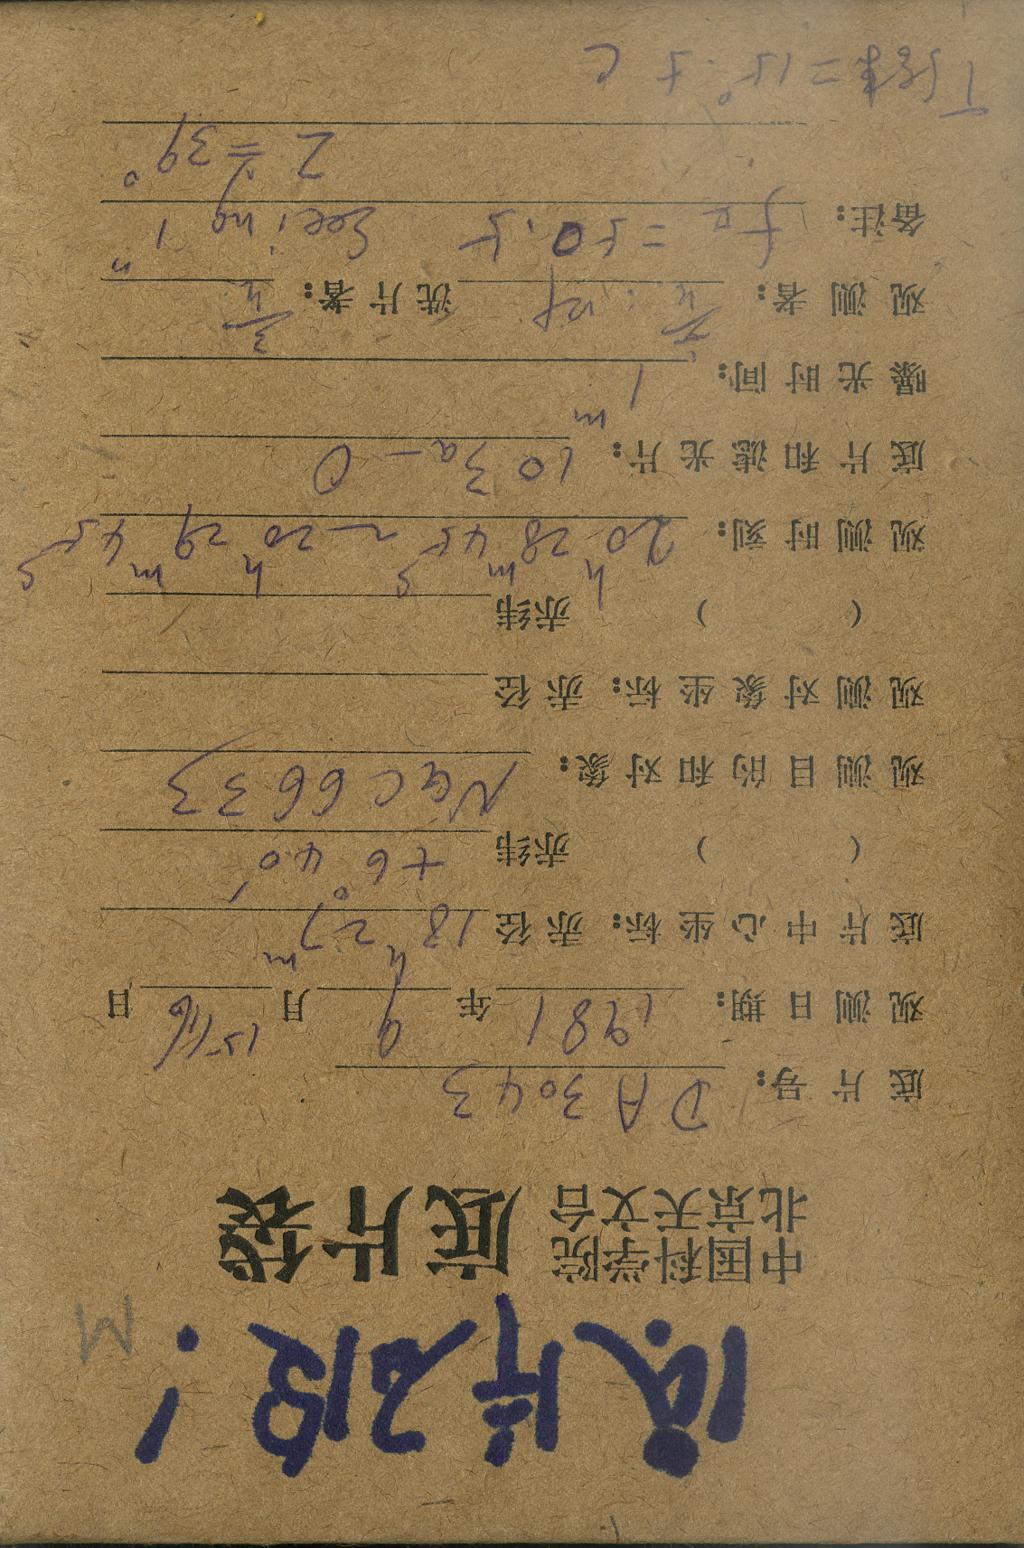 底片破!
M
中国科学院
北京天文台 底片袋
底片号: DA3043
观测日期: 1981 年 9 月 15/16 日
底片中心坐标: 赤径 18h 27m
( ) 赤纬 +6° 40′
观测目的和对象: NGC 6633
观测对象坐标: 赤径
( ) 赤纬
观测时刻: 20h 28m 45s ~ 20h 29m 45s
底片和滤光片: 103a-O
曝光时间: 1m
观测者: 洗片者:
备注: fa = 50.5 Seeing 1"
Z = 39°
= 15°.5 C